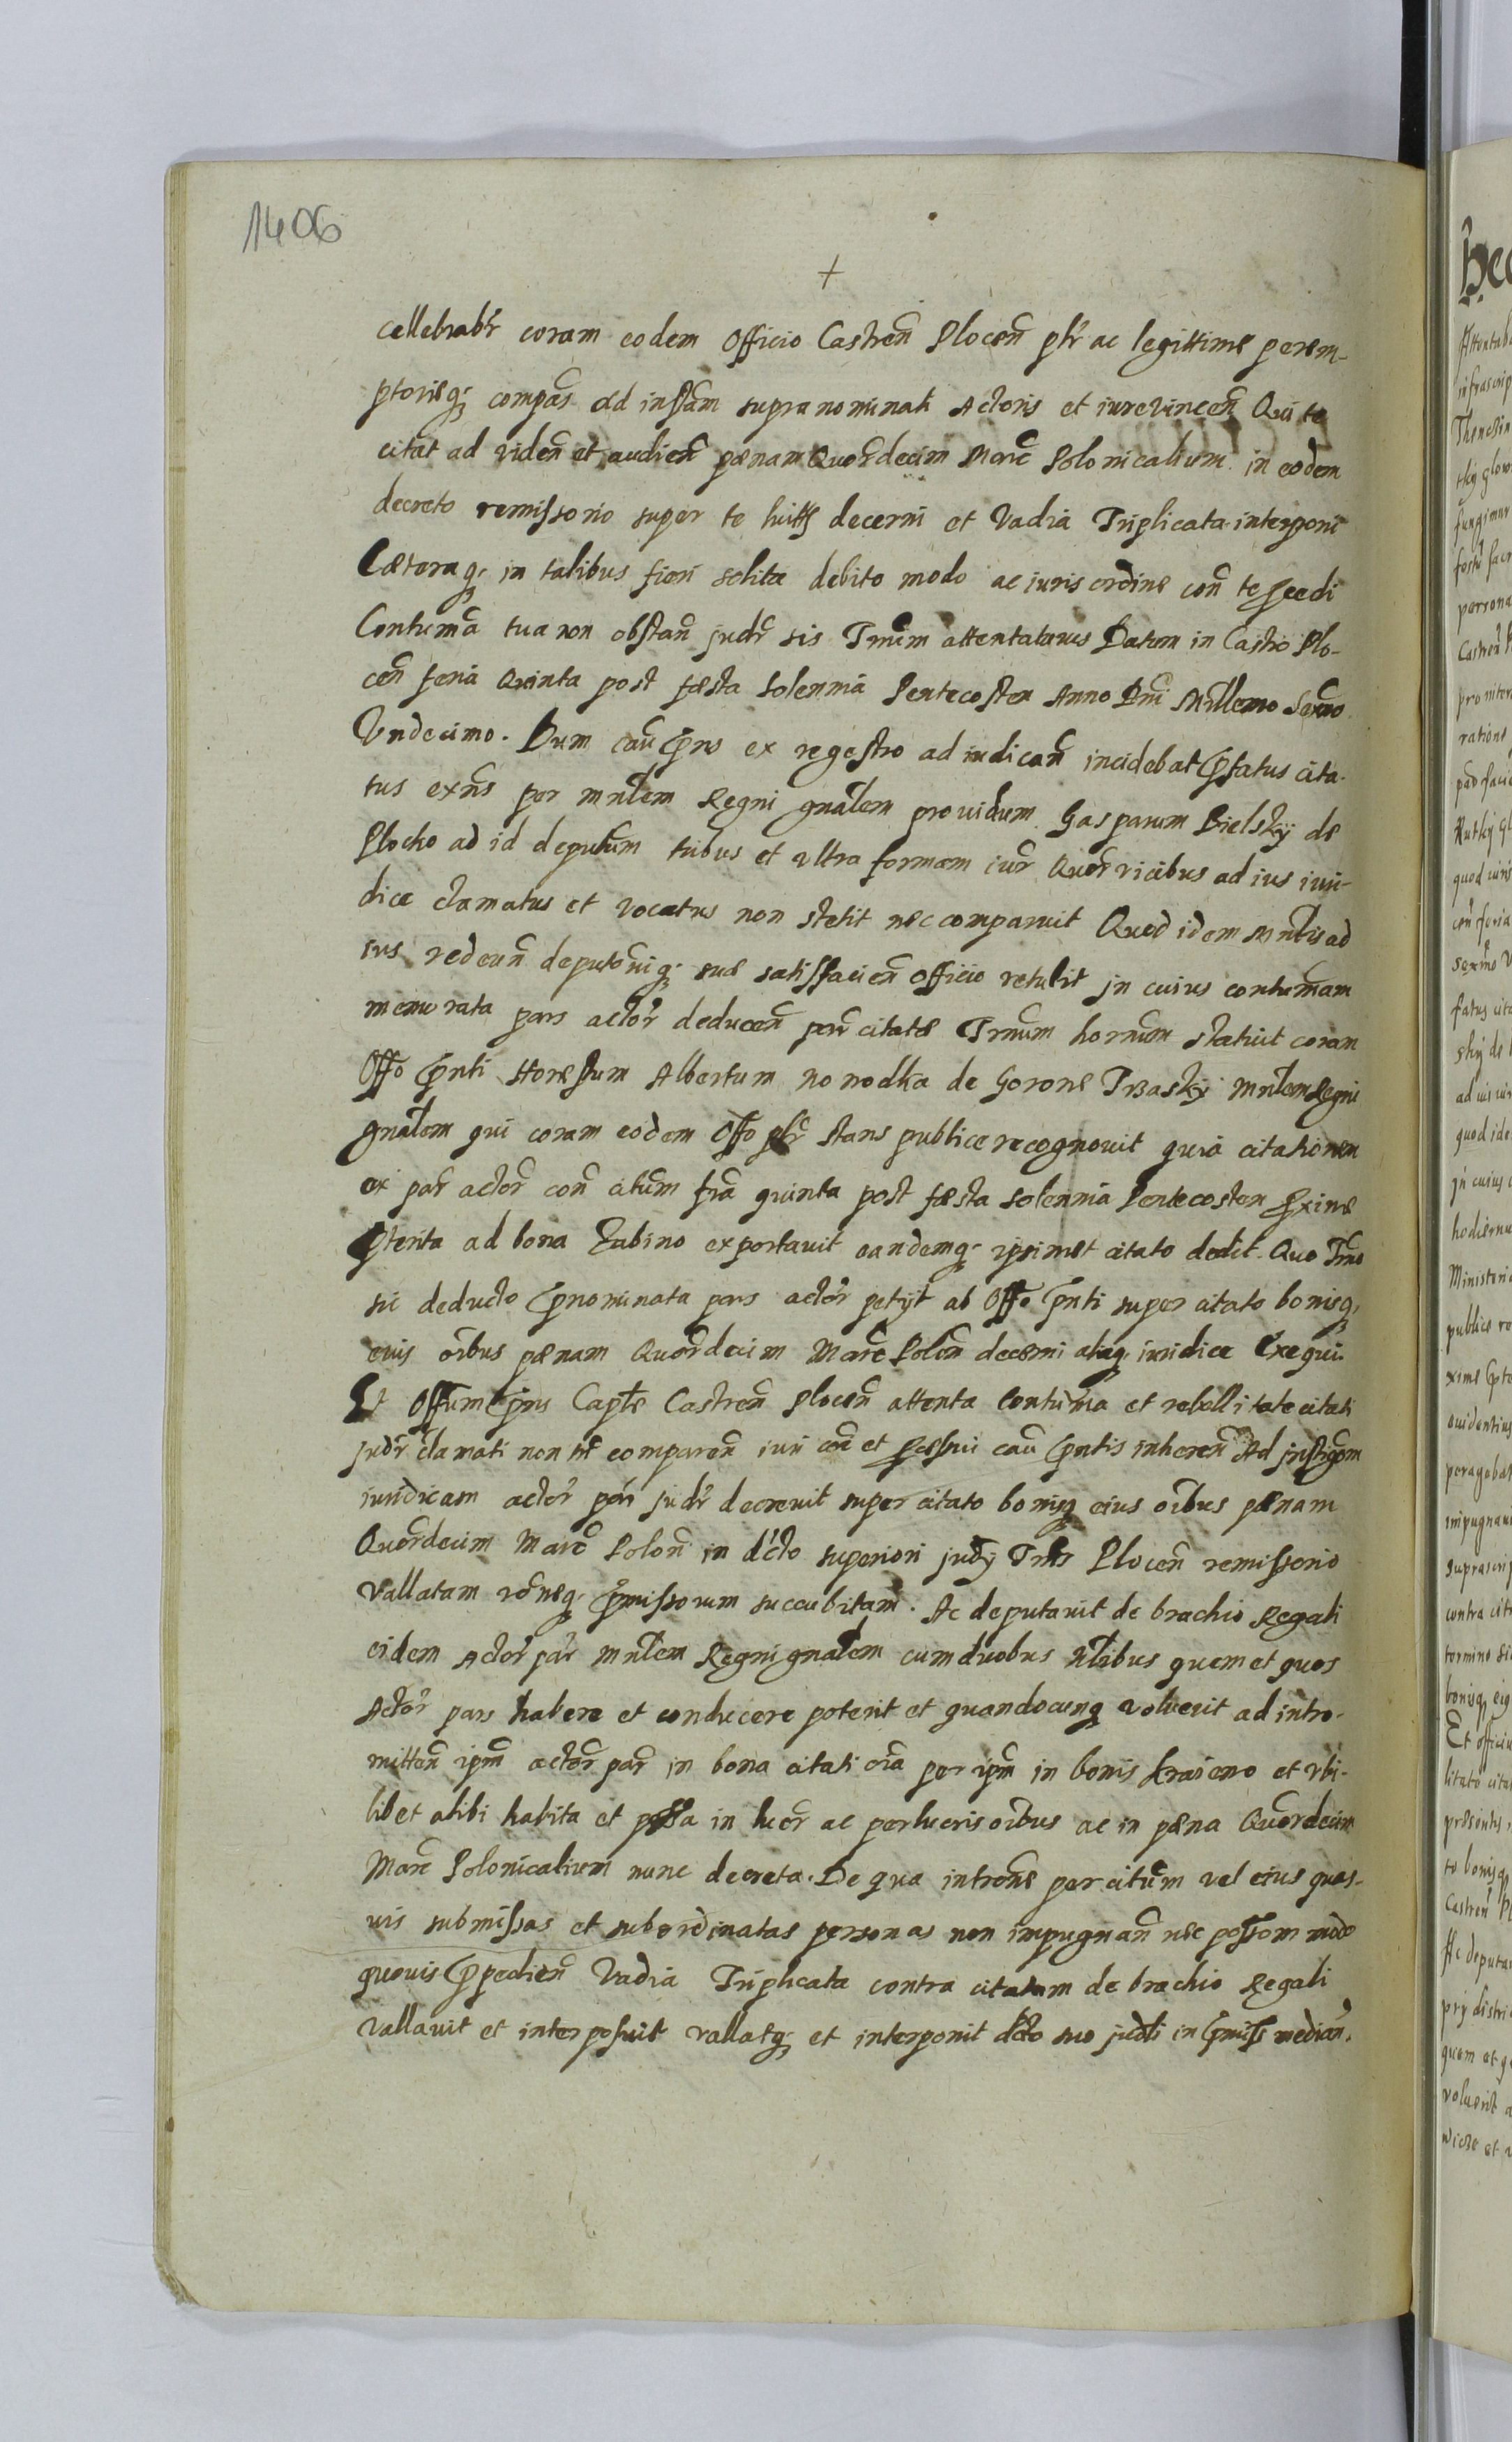 1406
+
cellebrabr coram eodem Officio Castren Plocen plr ac legittime perem-
ptorieq; compas Ad instam supra nominati Actoris et iurevincen Qui te
citat ad viden et audien pænam Quordecim Marc Polonicalium in eodem
decreto remissorio super te decerni et Vadia Triplicata interponi
Cæteraq; in talibus fieri solita debito modo ac iuris ordine con te pcedi
Contuma tua non obstan judr sis Trnum attentaturus Datum in Castro Plo-
cen feria Quinta post fæsta Solennia Pentecosten Anno Dni Millemo Sexmo
Vndecimo. Dum cau pns ex regestro ad iudican incidebat pfatus cita-
tus exns per mnlem Regni gnalem prouidum Gasparum Bielskÿ de
Plocko ad id deputum tribus et vltra formam iur Quor vicibus ad ius iuri-
dice clamatus et vocatus non stetit nec comparuit Quod idem Mnlis ad
ius redeun deputoniq; suæ satisfacien officio retulit jn cuius contumam
memorata pars actor deducen parr citatæ Trnum hornum statuit coram
Offo pnti Honestum Albertum nonodka de Gorone Trzaskÿ mnlem Regni
gnalem qui coram eodem Offo plr stans publice recognouit quia citationem
ex par actor con citum fria quinta post fæsta solennia Pentecosten pxime
pterita ad bona Zabino exportauit eandemq; ipsimet citato dedit. Quo Trno
sic deducto pnominata pars actor petijt ab Offo pnti super citato bonisq;
euis oibus pænam Quordecim Marc Polon decerni aliaq; iuridice Exequi.
Et Offum pns Capte Castren Plocen attenta Contuma et rebellitate citati
judr clamati non comparen iuri con et pcessui cau pntis inheren Ad instigom
iuridicam actor par judr decreuit super citato bonisq eius oibus pænam
Quordecim Marc Polon in dcto superiori judij Tris Plocen remissorio
vallatam roneq; pmissorum succubitam. Ac deputauit de brachio Regali
eidem Actor par mnlem Regni gnalem cum duobus Nlibus quem et quos
Actor pars habere et conducere poterit et quandocunq voluerit ad intro-
mitten ipm actor par in bona citati oia per ipm in bonis Kraieno et vbi-
libet alibi habita et possa in lucr ac perlucris oibus ac in pæna Quordecim
Marc Polonicalium nunc decreta. De qua introne per citum vel eius quas-
uis submissas et subordinatas personas non impugnan nec possom modo
quouis ppedien Vadia Triplicata contra citatum de brachio Regali
vallauit et interposuit vallatq; et interponit dcto suo judli in pmiss median.